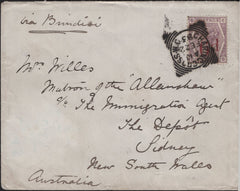 via Brindisi
Mrs Willes
Matron of the "Allanshaw"
c/o The Immigration Agent
The Depôt
Sidney
New South Wales
Australia